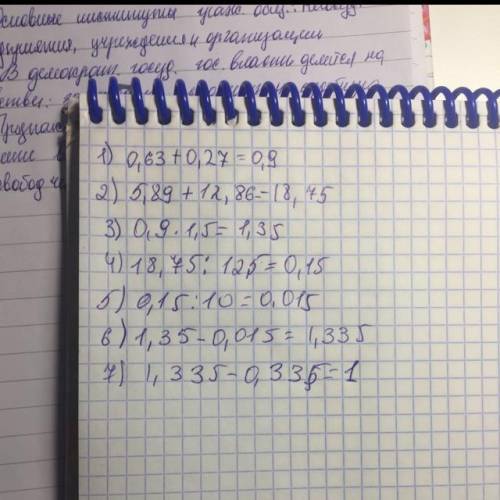 Основные институты гражд. общ.:
учреждения и организации
В демократ. госуд. гос. власть делится на
1) 0,63 + 0,27 = 0,9
2) 5,89 + 12,86 = 18,75
3) 0,9 · 1,5 = 1,35
4) 18,75 : 125 = 0,15
5) 0,15 : 10 = 0,015
6) 1,35 - 0,015 = 1,335
7) 1,335 - 0,335 = 1